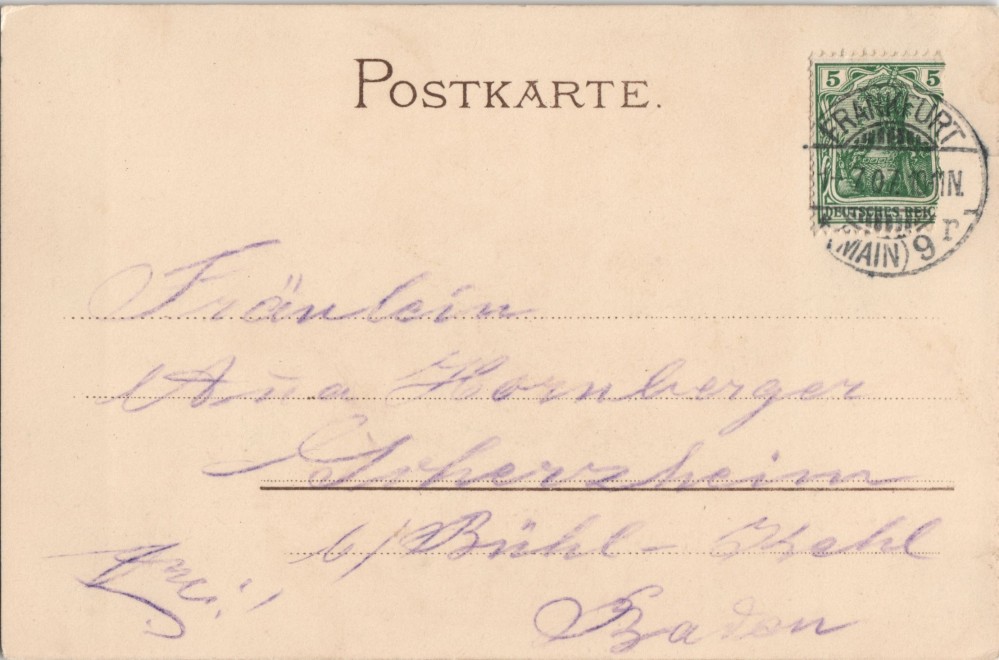 POSTKARTE.
5 5
DEUTSCHES REIC
FRANKFURT
7.07.10-11N.
(MAIN) 9 r
Fräulein
Anna Hornberger
Scherzheim
b/ Bühl - Kehl
Baden